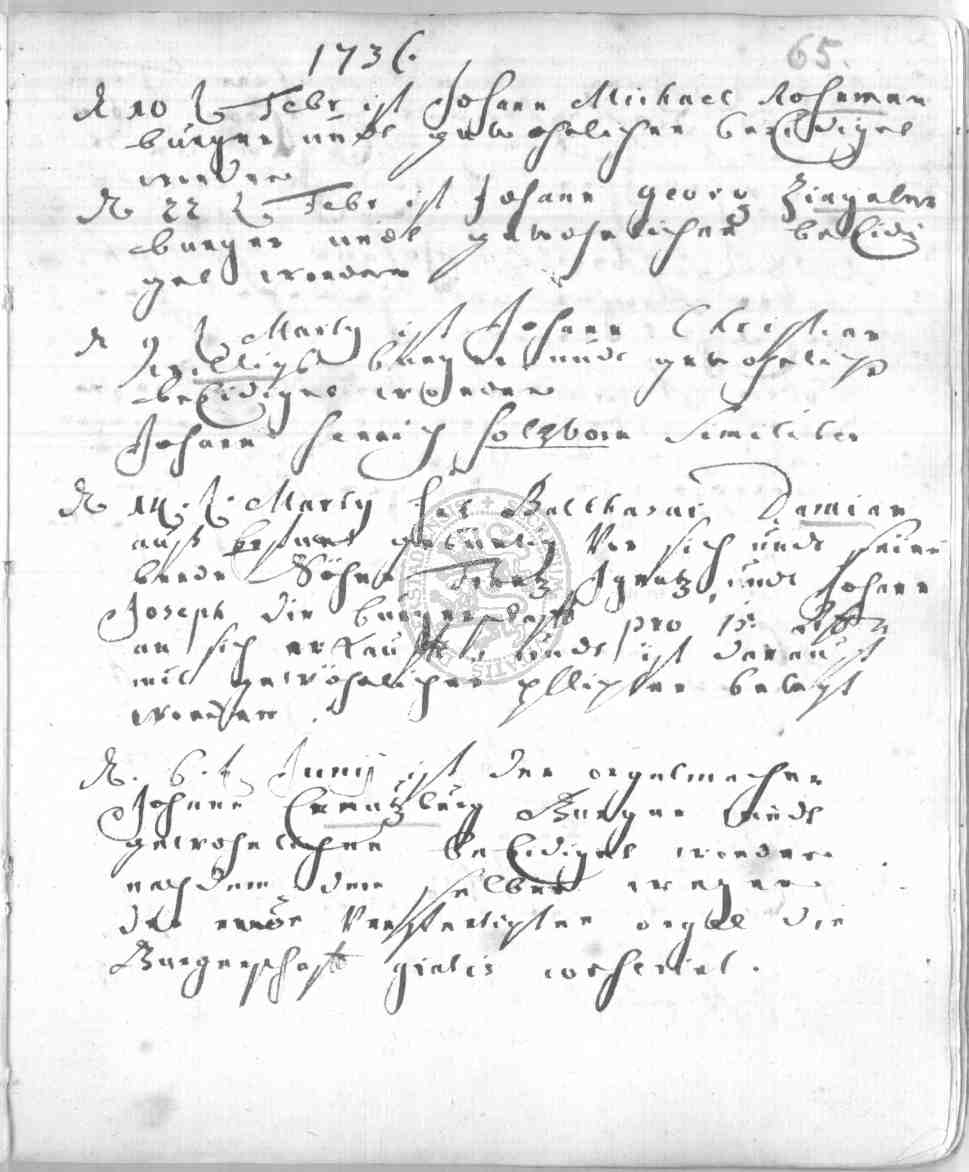 1736.
65.
d 10 t Febr ist Johann Michael Rohrman
burger undt gewohnlicher beeidiget
worden
d 22 t Febr ist Johann georg Ziegeler
burger undt gewohnlicher beeidi
get worden
d 9 t Marty ist Johann Christian
burger undt gewohnlich
beeidiget worden
Johann Henrich Holzborn Similiter
d 14. t. Marty hat Balthasar Damian
auß gebürtig vor sich undt seine
beede Söhne Frantz Ignatz undt Johann
Joseph die burgerschafft pro 15
an sich erkaufft undt ist darauf
mit gewöhnlicher pflichten belegt
worden.
d. 6. t Junij ist der orgelmacher
Johann Creutzburg Burger undt
gewohnlicher beeidiget worden
nachdem dem selben wegen
der neuen verfertigten orgell die
Burgerschafft gratis conferirt.